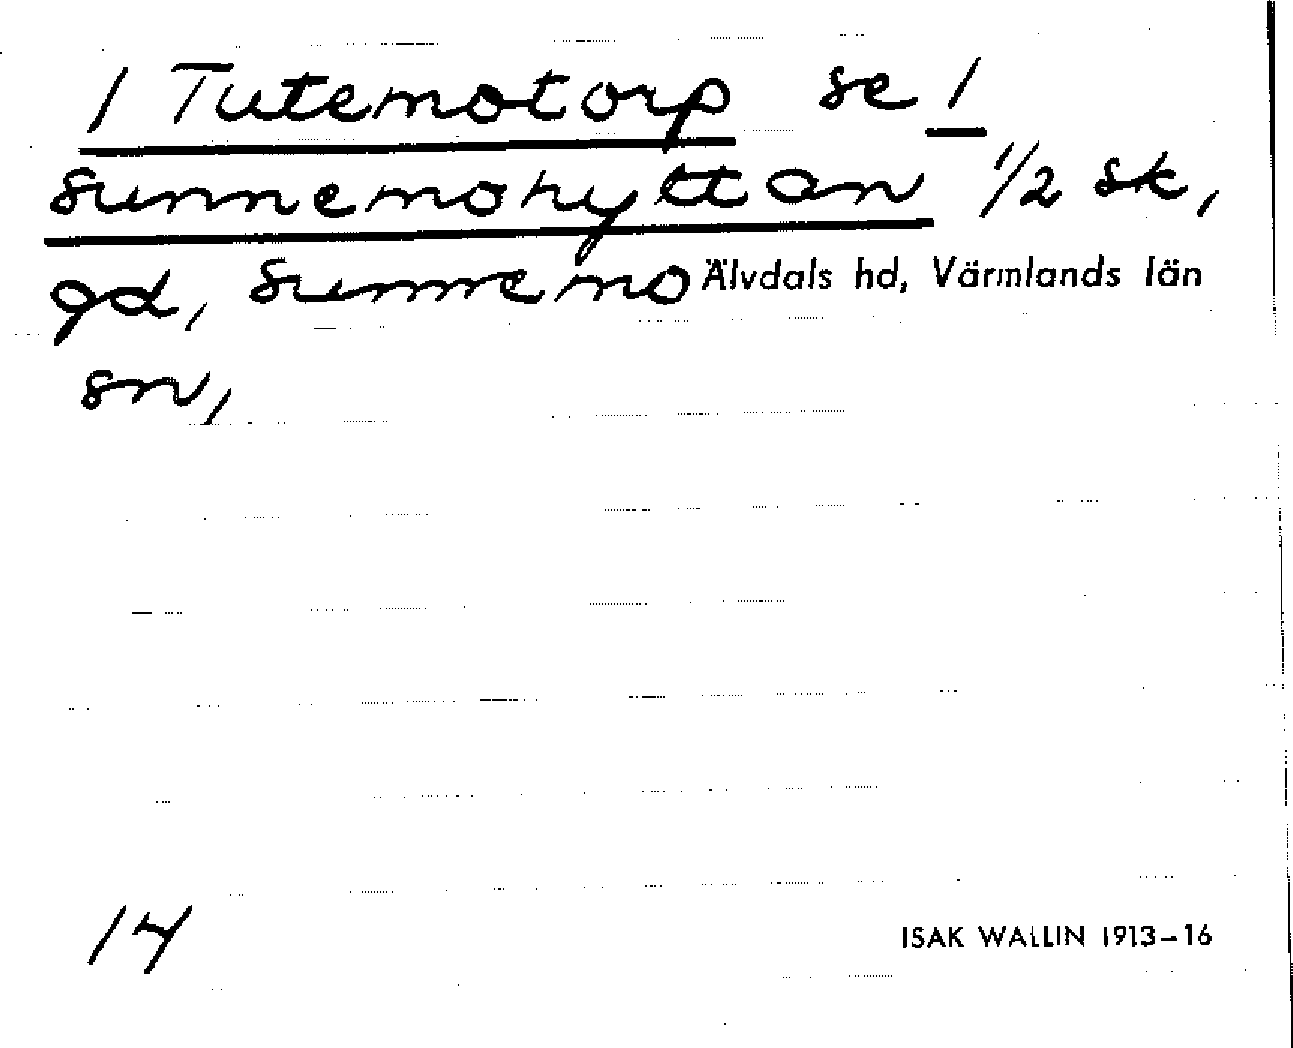 1 Tutemotorp se 1
Sunnemohyttan 1/2 sk,
gd, Sunnemo Älvdals hd, Värmlands län
sn,
14
ISAK WALLIN 1913–16